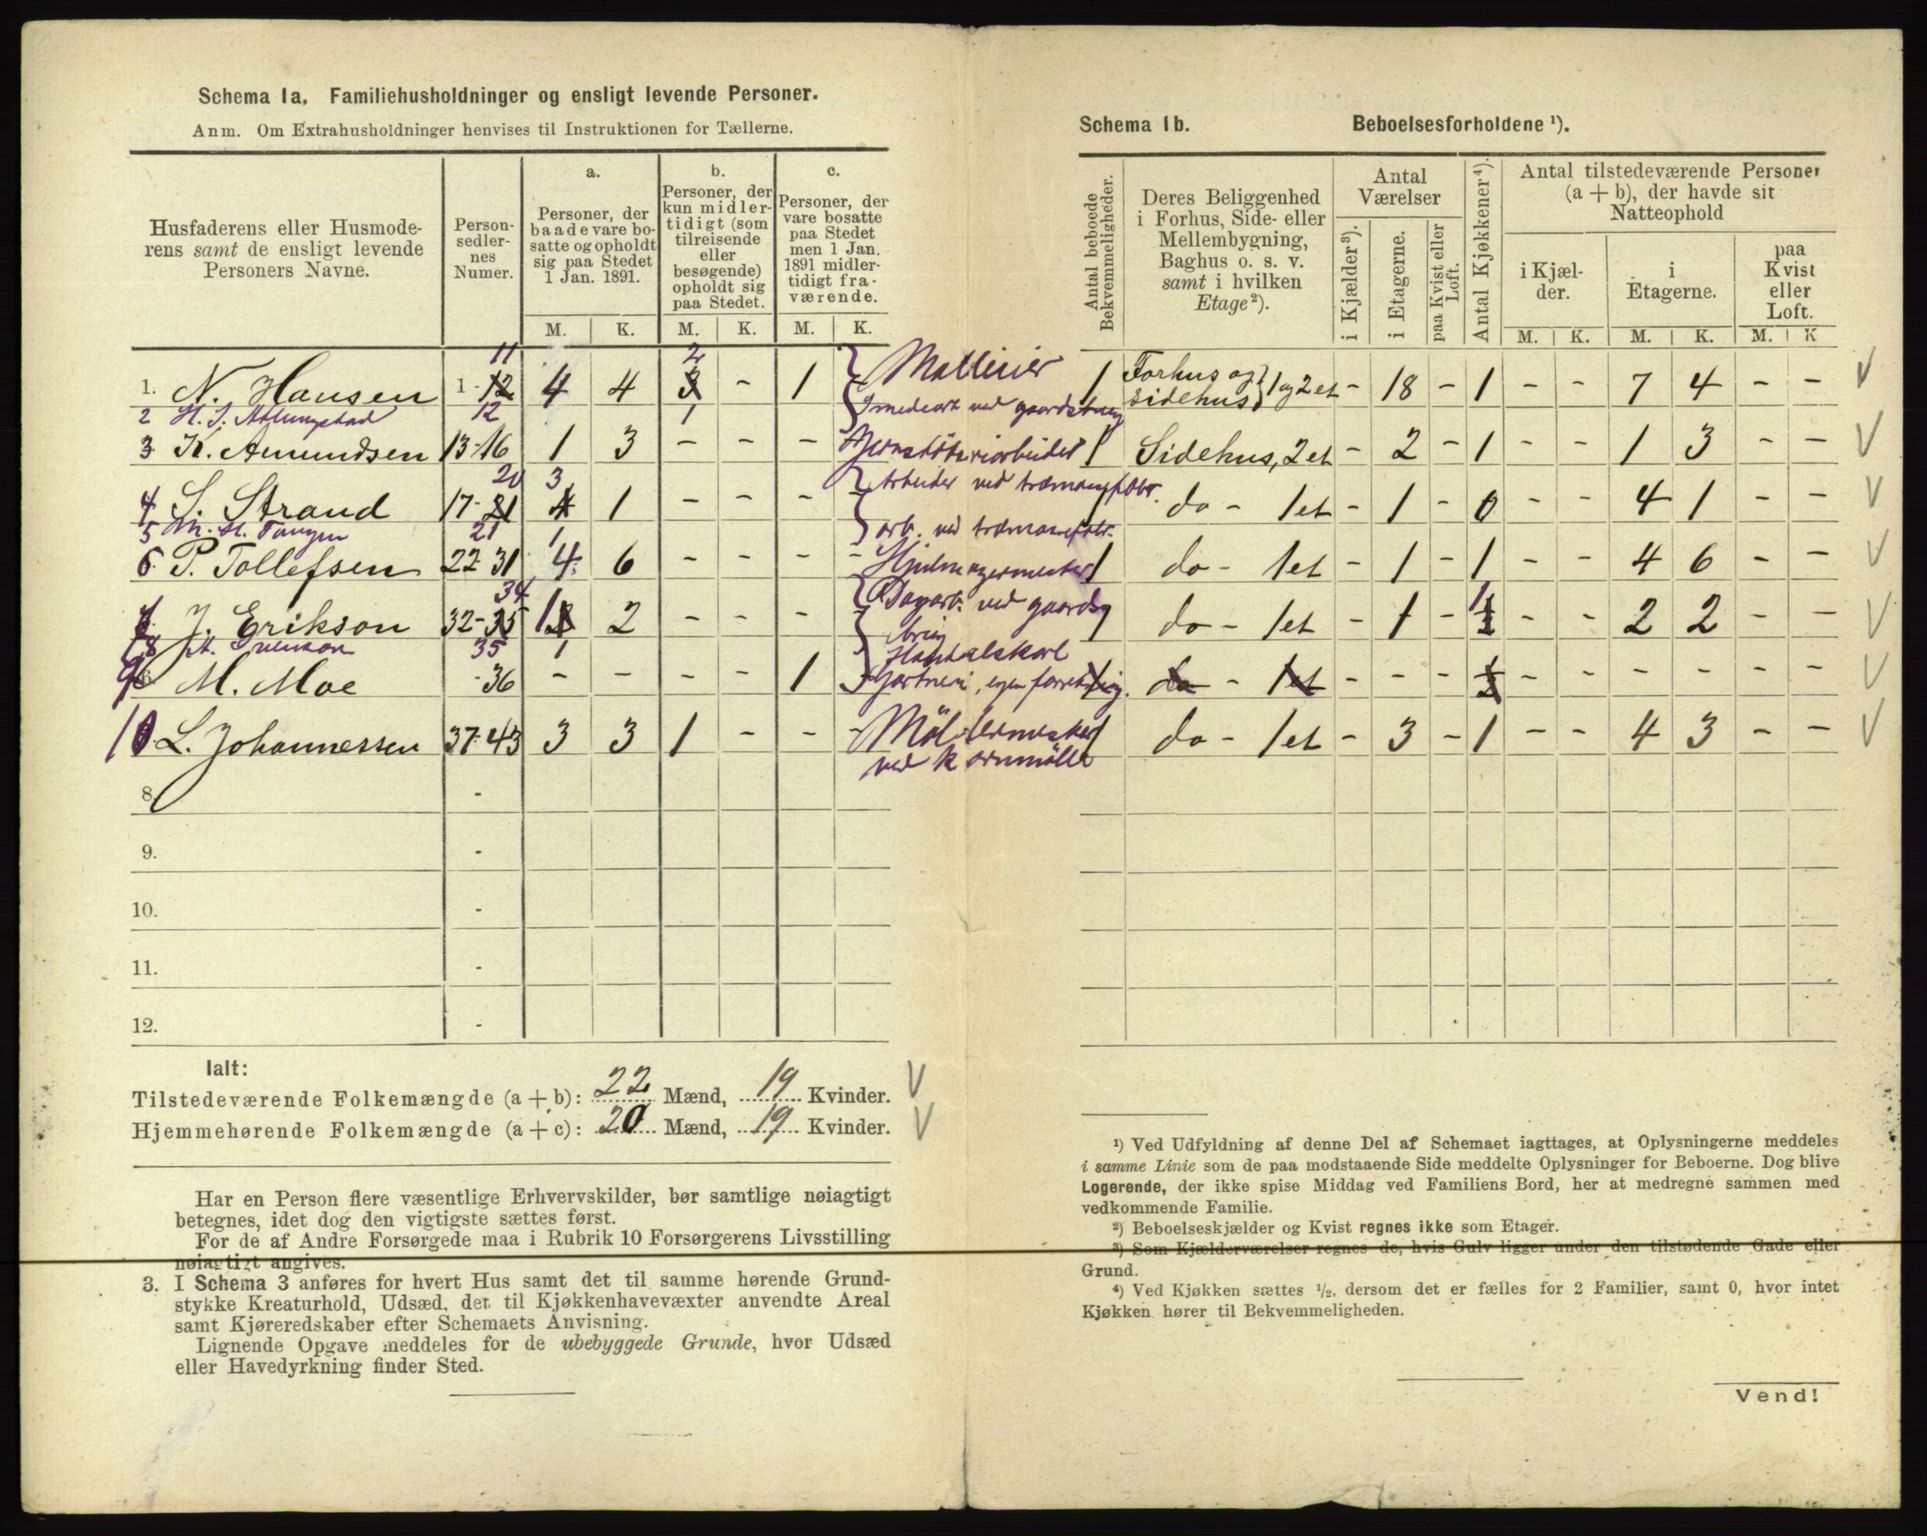 Schema 1a. Familiehusholdninger og ensligt levende Personer.
Anm. Om Extrahusholdninger henvises til Instruktionen for Tællerne.
Husfaderens eller Husmoderens samt de ensligt levende Personers Navne.
Personsedlernes Numer.
a. Personer, der baade vare bosatte og opholdt sig paa Stedet 1 Jan. 1891.
b. Personer, der kun midlertidigt (som tilreisende eller besøgende) opholdt sig paa Stedet.
c. Personer, der vare bosatte paa Stedet men 1 Jan. 1891 midlertidigt fraværende.
M. K. M. K. M. K.
11 2
1. N. Hansen 1-12 4 4 3 - 1 Møllerier
2 12 1 Smedearb. ved gaardsbrug
3 K. Amundsen 13-16 1 3 - - -
20 3 Arbeider ved
4 S. Strand 17-21 4 1 - - -
5 M. H. Tangen 21 1 arb. ved
6 P. Tollefsen 22-31 4 6 - - - - Hjulmagermester
34 Dagarb. ved gaardsbrug
7 J. Erikson 32-35 1 2 2 - - -
8 35 1 Handelskarl
9 M. Moe -36 - - - - 1 Gartneri, egen forretning.
10 L. Johannessen 37-43 3 3 1 - - - Møllermester
ved Kornmølle
8. -
9. -
10. -
11. -
12. -
Ialt:
Tilstedeværende Folkemængde (a + b): 22 Mænd, 19 Kvinder.
Hjemmehørende Folkemængde (a + c): 20 Mænd, 19 Kvinder.
Har en Person flere væsentlige Erhvervskilder, bør samtlige nøiagtigt
betegnes, idet dog den vigtigste sættes først.
For de af Andre Forsørgede maa i Rubrik 10 Forsørgerens Livsstilling
nøiagtigt angives.
3. I Schema 3 anføres for hvert Hus samt det til samme hørende Grund-
stykke Kreaturhold, Udsæd, det til Kjøkkenhavevæxter anvendte Areal
samt Kjøreredskaber efter Schemaets Anvisning.
Lignende Opgave meddeles for de ubebyggede Grunde, hvor Udsæd
eller Havedyrkning finder Sted.
Schema 1b. Beboelsesforholdene ¹).
Antal beboede Bekvemmeligheder.
Deres Beliggenhed i Forhus, Side- eller Mellembygning, Baghus o. s. v. samt i hvilken Etage²).
Antal Værelser
i Kjælder³).
i Etagerne.
paa Kvist eller Loft.
Antal Kjøkkener⁴).
Antal tilstedeværende Personer (a + b), der havde sit Natteophold
i Kjælder.
i Etagerne.
paa Kvist eller Loft.
M. K. M. K. M. K
1 Forhus og Sidehus } 1 og 2 et - 18 - 1 - - 7 4 - -
1 Sidehus, 2 et - 2 - 1 - - 1 3 - -
1 do - 1 et - 1 - 0 - - 4 1 - -
1 do - 1 et - 1 - 1 - - 4 6 - -
1 do - 1 et - 1 - 1 ½ - - 2 2 - -
1 do - 1 et - - - ½ - - - - - -
1 do - 1 et - 3 - 1 - - 4 3 - -
¹) Ved Udfyldning af denne Del af Schemaet iagttages, at Oplysningerne meddeles
i samme Linie som de paa modstaaende Side meddelte Oplysninger for Beboerne. Dog blive
Logerende, der ikke spise Middag ved Familiens Bord, her at medregne sammen med
vedkommende Familie.
²) Beboelseskjælder og Kvist regnes ikke som Etager.
³) Som Kjælderværelser regnes de, hvis Gulv ligger under den tilstødende Gade eller
Grund.
⁴) Ved Kjøkken sættes ½, dersom det er fælles for 2 Familier, samt 0, hvor intet
Kjøkken hører til Bekvemmeligheden.
Vend!